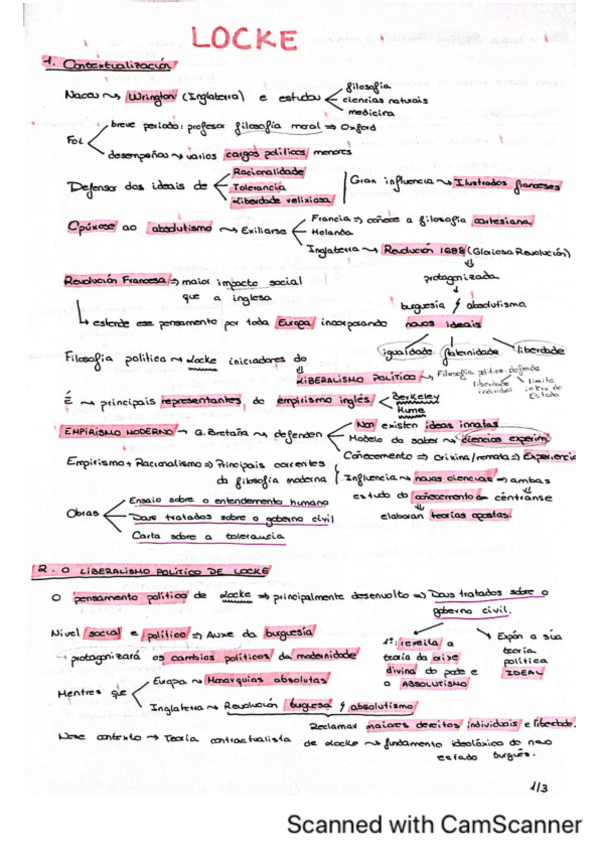 LOCKE
1. Contextualización
filosofía
Naceu ~> Wrington (Inglaterra) e estudou ciencias naturais
medicina
breve período: profesor filosofía moral => Oxford
Foi
desempeñou ~> varios cargos políticos menores
Racionalidade
Defensor dos ideais de Tolerancia | Gran influencia ~> Ilustrados franceses
Liberdade relixiosa
Francia => coñece a filosofía cartesiana
Opúxose ao absolutismo ~> Exiliarse Holanda
Inglaterra ~> Revolución 1688 (Gloriosa Revolución)
Revolución Francesa => maior impacto social
protagonizada
que a inglesa
burguesía / absolutismo
↳ estende ese pensamento por toda Europa incorporando novos ideais
igualdade fraternidade liberdade
Filosofía política ~> Locke iniciadores do
LIBERALISMO POLÍTICO ~> Filosofía política: defende
liberdade individual
limita
Estado
É ~> principais representantes do empirismo inglés Berkeley
Hume
EMPIRISMO MODERNO -> G. Bretaña ~> defenden Non existen ideas innatas
Modelo do saber ~> Ciencias experim
Coñecemento => Orixina/remata => Experiencia
Empirismo + Racionalismo => Principais correntes
da filosofía moderna Influencia ~> novas ciencias => ambas
estudo do coñecemento céntranse
elaboran teorías opostas.
Ensaio sobre o entendemento humano
Obras Dous tratados sobre o goberno civil
Carta sobre a tolerancia
2. O LIBERALISMO POLÍTICO DE LOCKE
O pensamento político de Locke => principalmente desenvolto => Dous tratados sobre o
goberno civil.
Nivel social e político => Auxe da burguesía
protagonizará os cambios políticos da modernidade
1º: rexeita a teoría da orixe divina do poder e o ABSOLUTISMO
Expón a súa teoría política IDEAL
Europa ~> Monarquías absolutas
Mentres que
Inglaterra ~> Revolución burguesa / absolutismo
Reclamar maiores dereitos individuais e liberdade.
Nese contexto -> Teoría contractualista de Locke ~> fundamento ideolóxico do novo
estado burgués.
1/3
Scanned with CamScanner